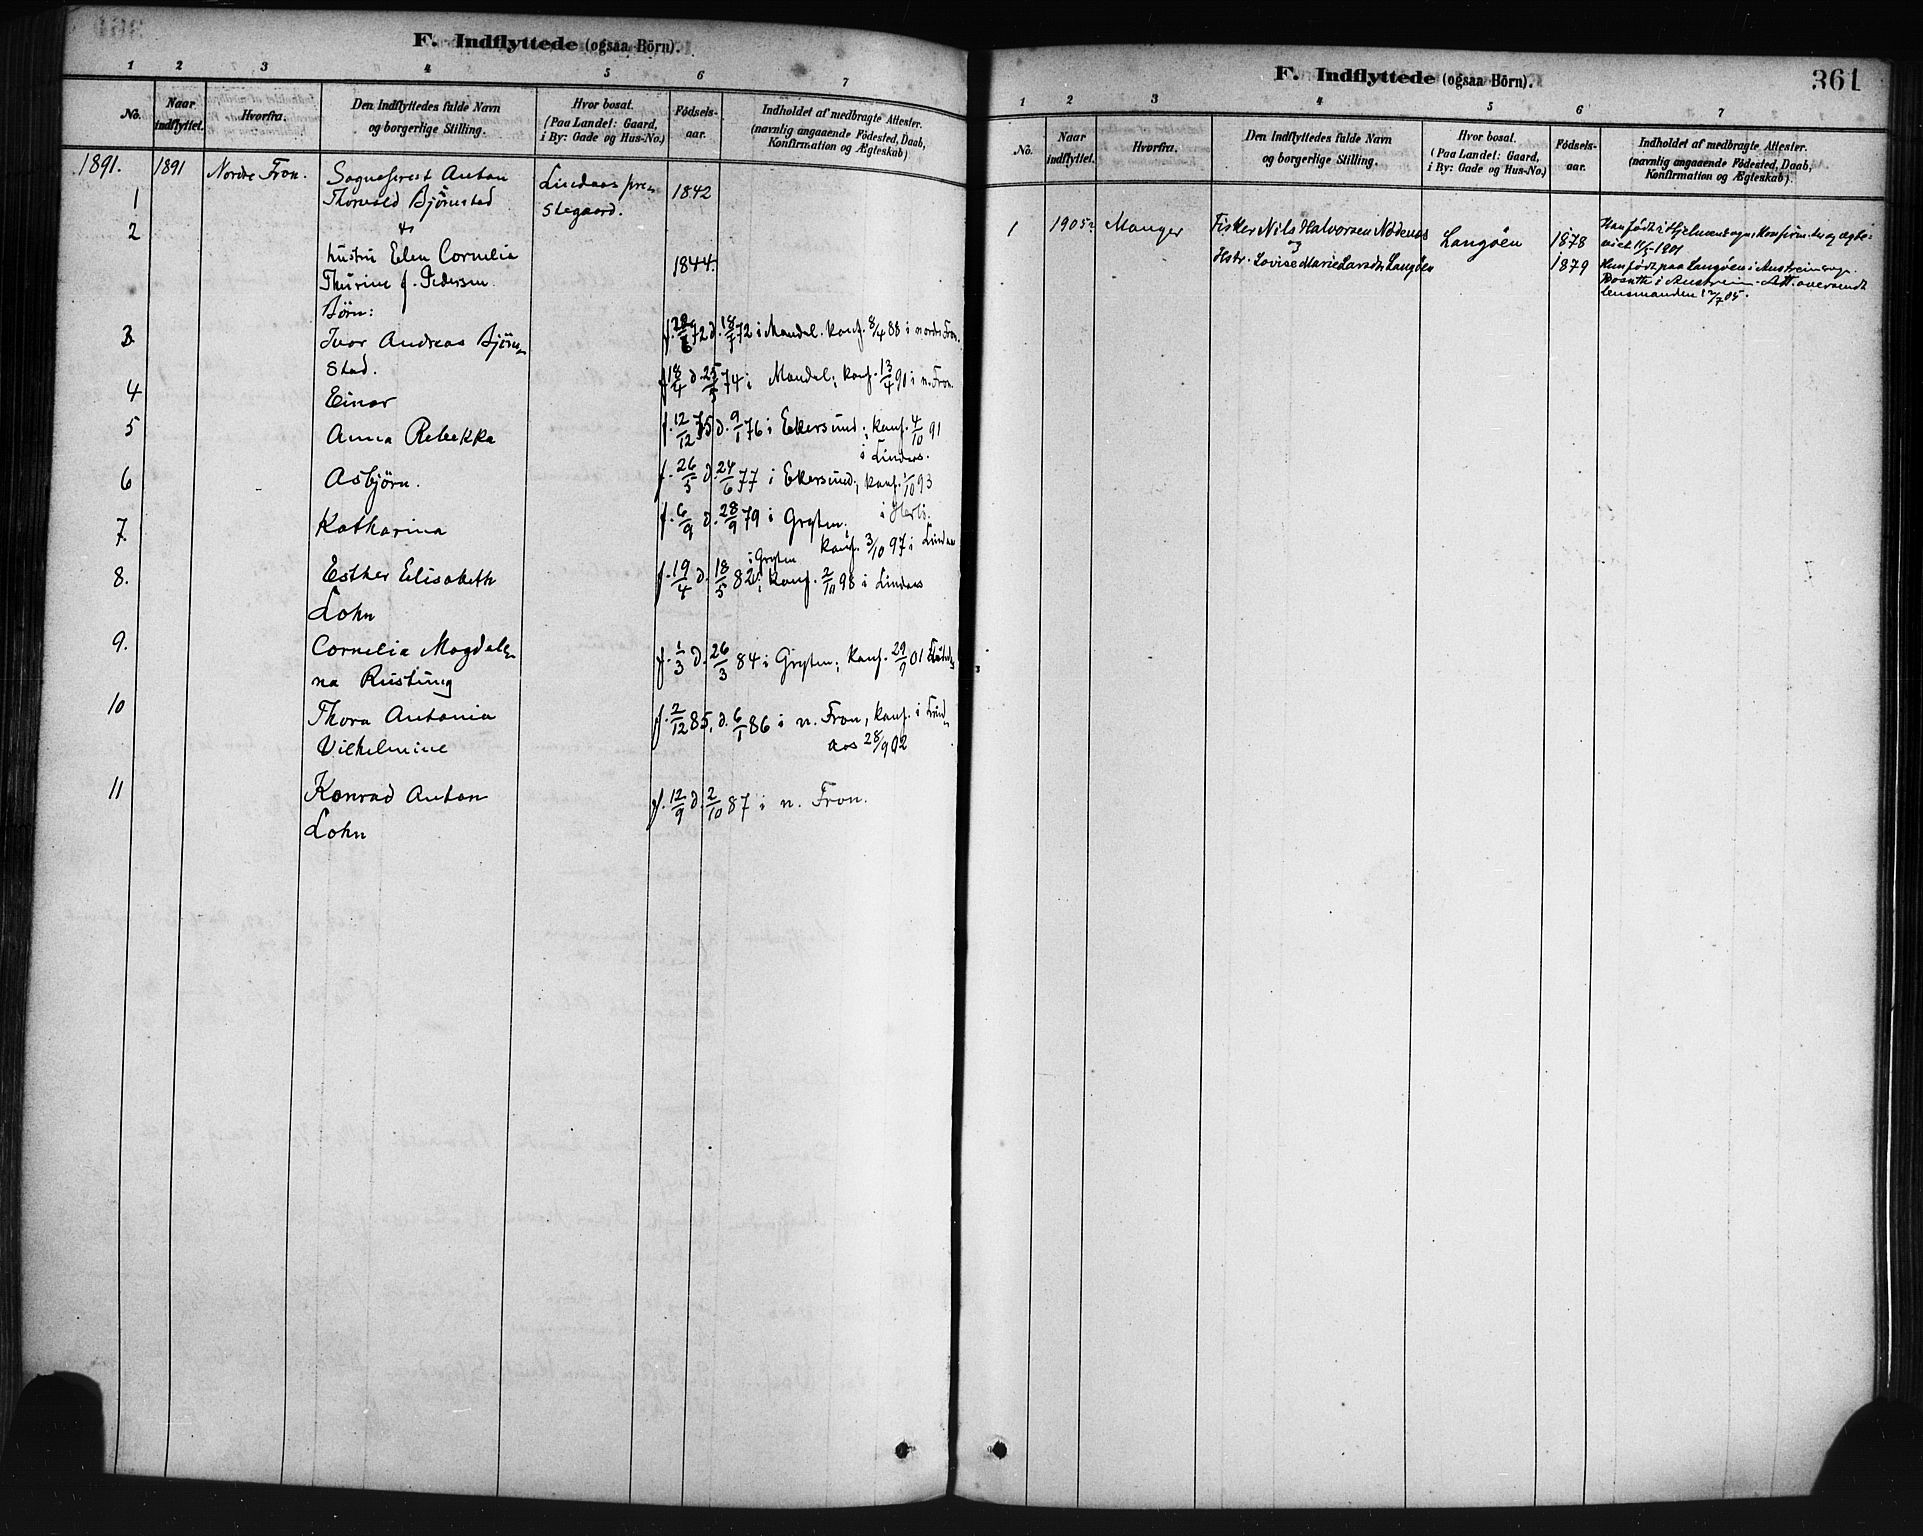 F. Indflyttede (ogsaa Börn).
1 2 3 4 5 6 7
No. Naar indflyttet. Hvorfra. Den Indflyttedes fulde Navn og borgerlige Stilling. Hvor bosat. (Paa Landet: Gaard, i By: Gade og Hus-No.) Födsels-aar. Indholdet af medbragte Attester. (navnlig angaaende Födested, Daab, Konfirmation og Ægteskab)
1891. 1891 Nordre Fron. Sogneprest Anton Lindaas pre-
1 Thorvald Bjørnstad stegaard. 1842
2 &
hustru Elen Cornelia
Thurine f. Pedersen 1844.
Børn:
3. Ivar Andreas Bjørn- f. 28/6 72 d. 18/7 72 i Mandal. konf. 8/4 88 i nordr Fron.
stad.
4 Einar f 18/4 d. 25/5 74 i Mandal; konf. 13/4 90 i n. Fron.
5 Anna Rebekka f. 12/12 75 d. 9/1 76 i Ekersund; konf. 4/10 91
i Lindaas.
6 Asbjørn. f. 26/5 d. 24/6 77 i Ekersund; konf. 1/10 93
i Herlø.
7. Katharina f. 6/9 d. 28/9 79 i Grytten;
konf. 3/10 97 i Lindaas
i Grytten
8. Esther Elisabeth f. 19/4 d. 18/5 82; konf. 2/10 98 i Lindaas
Lohn
9. Cornelia Magdale- f. 1/3 d. 26/3 84 i Grytten; konf. 29/9 01
na Rustung
10 Thora Antonia f. 2/12 85, d. 6/1 86 i n. Fron, konf. i Lind-
Vilhelmine aas 28/9 02
11 Konrad Anton f. 12/9 d. 2/10 87 i n. Fron.
Lohn
F. Indflyttede (ogsaa Börn). 361
1 2 3 4 5 6 7
No. Naar indflyttet. Hvorfra. Den Indflyttedes fulde Navn og borgerlige Stilling. Hvor bosat. (Paa Landet: Gaard, i By: Gade og Hus-No.) Födsels-aar. Indholdet af medbragte Attester. (navnlig angaaende Födested, Daab, Konfirmation og Ægteskab).
1 1905 Manger Fisker Nils Halvorsen Langøen 1878 Han født i Hjelmeasogn, konfirm. der og ægte-
og viet 1901
Hstr. Lovise Marie Larsdr Langøen 1879 Hun født paa Langøen i Austreimsogn.
Bosatte i Austrem - Att. oversendt
Lensmanden 05.